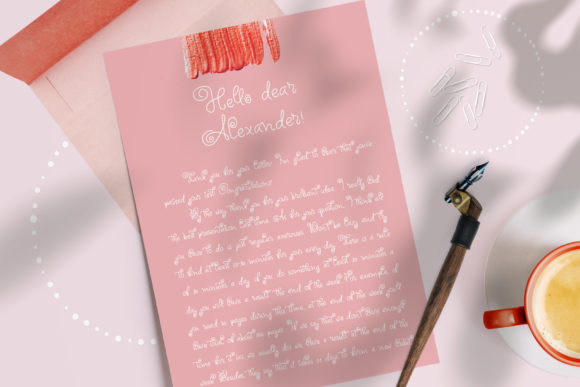 Hello dear
Alexander!
Thank you for your letter. I'm glad to hear that you've
passed your test. Congratulations!
By the way thank you for your brilliant idea. I really had
the best presentation last time. As for your question, I think all
you have to do is just regular exercises. Don't be lazy and try
to find at least 10 minutes for your every day. There is a rule
of 10 minutes a day if you do something at least 10 minutes a
day you will have a result at the end of the week. For example, if
you read 10 pages during this time, at the end of the week you'll
have total of about 70 pages. If we say that we don't have enough
time for it we usually do we have a result at the end of the
week. Besides, they say that it takes 21 day to form a new habit